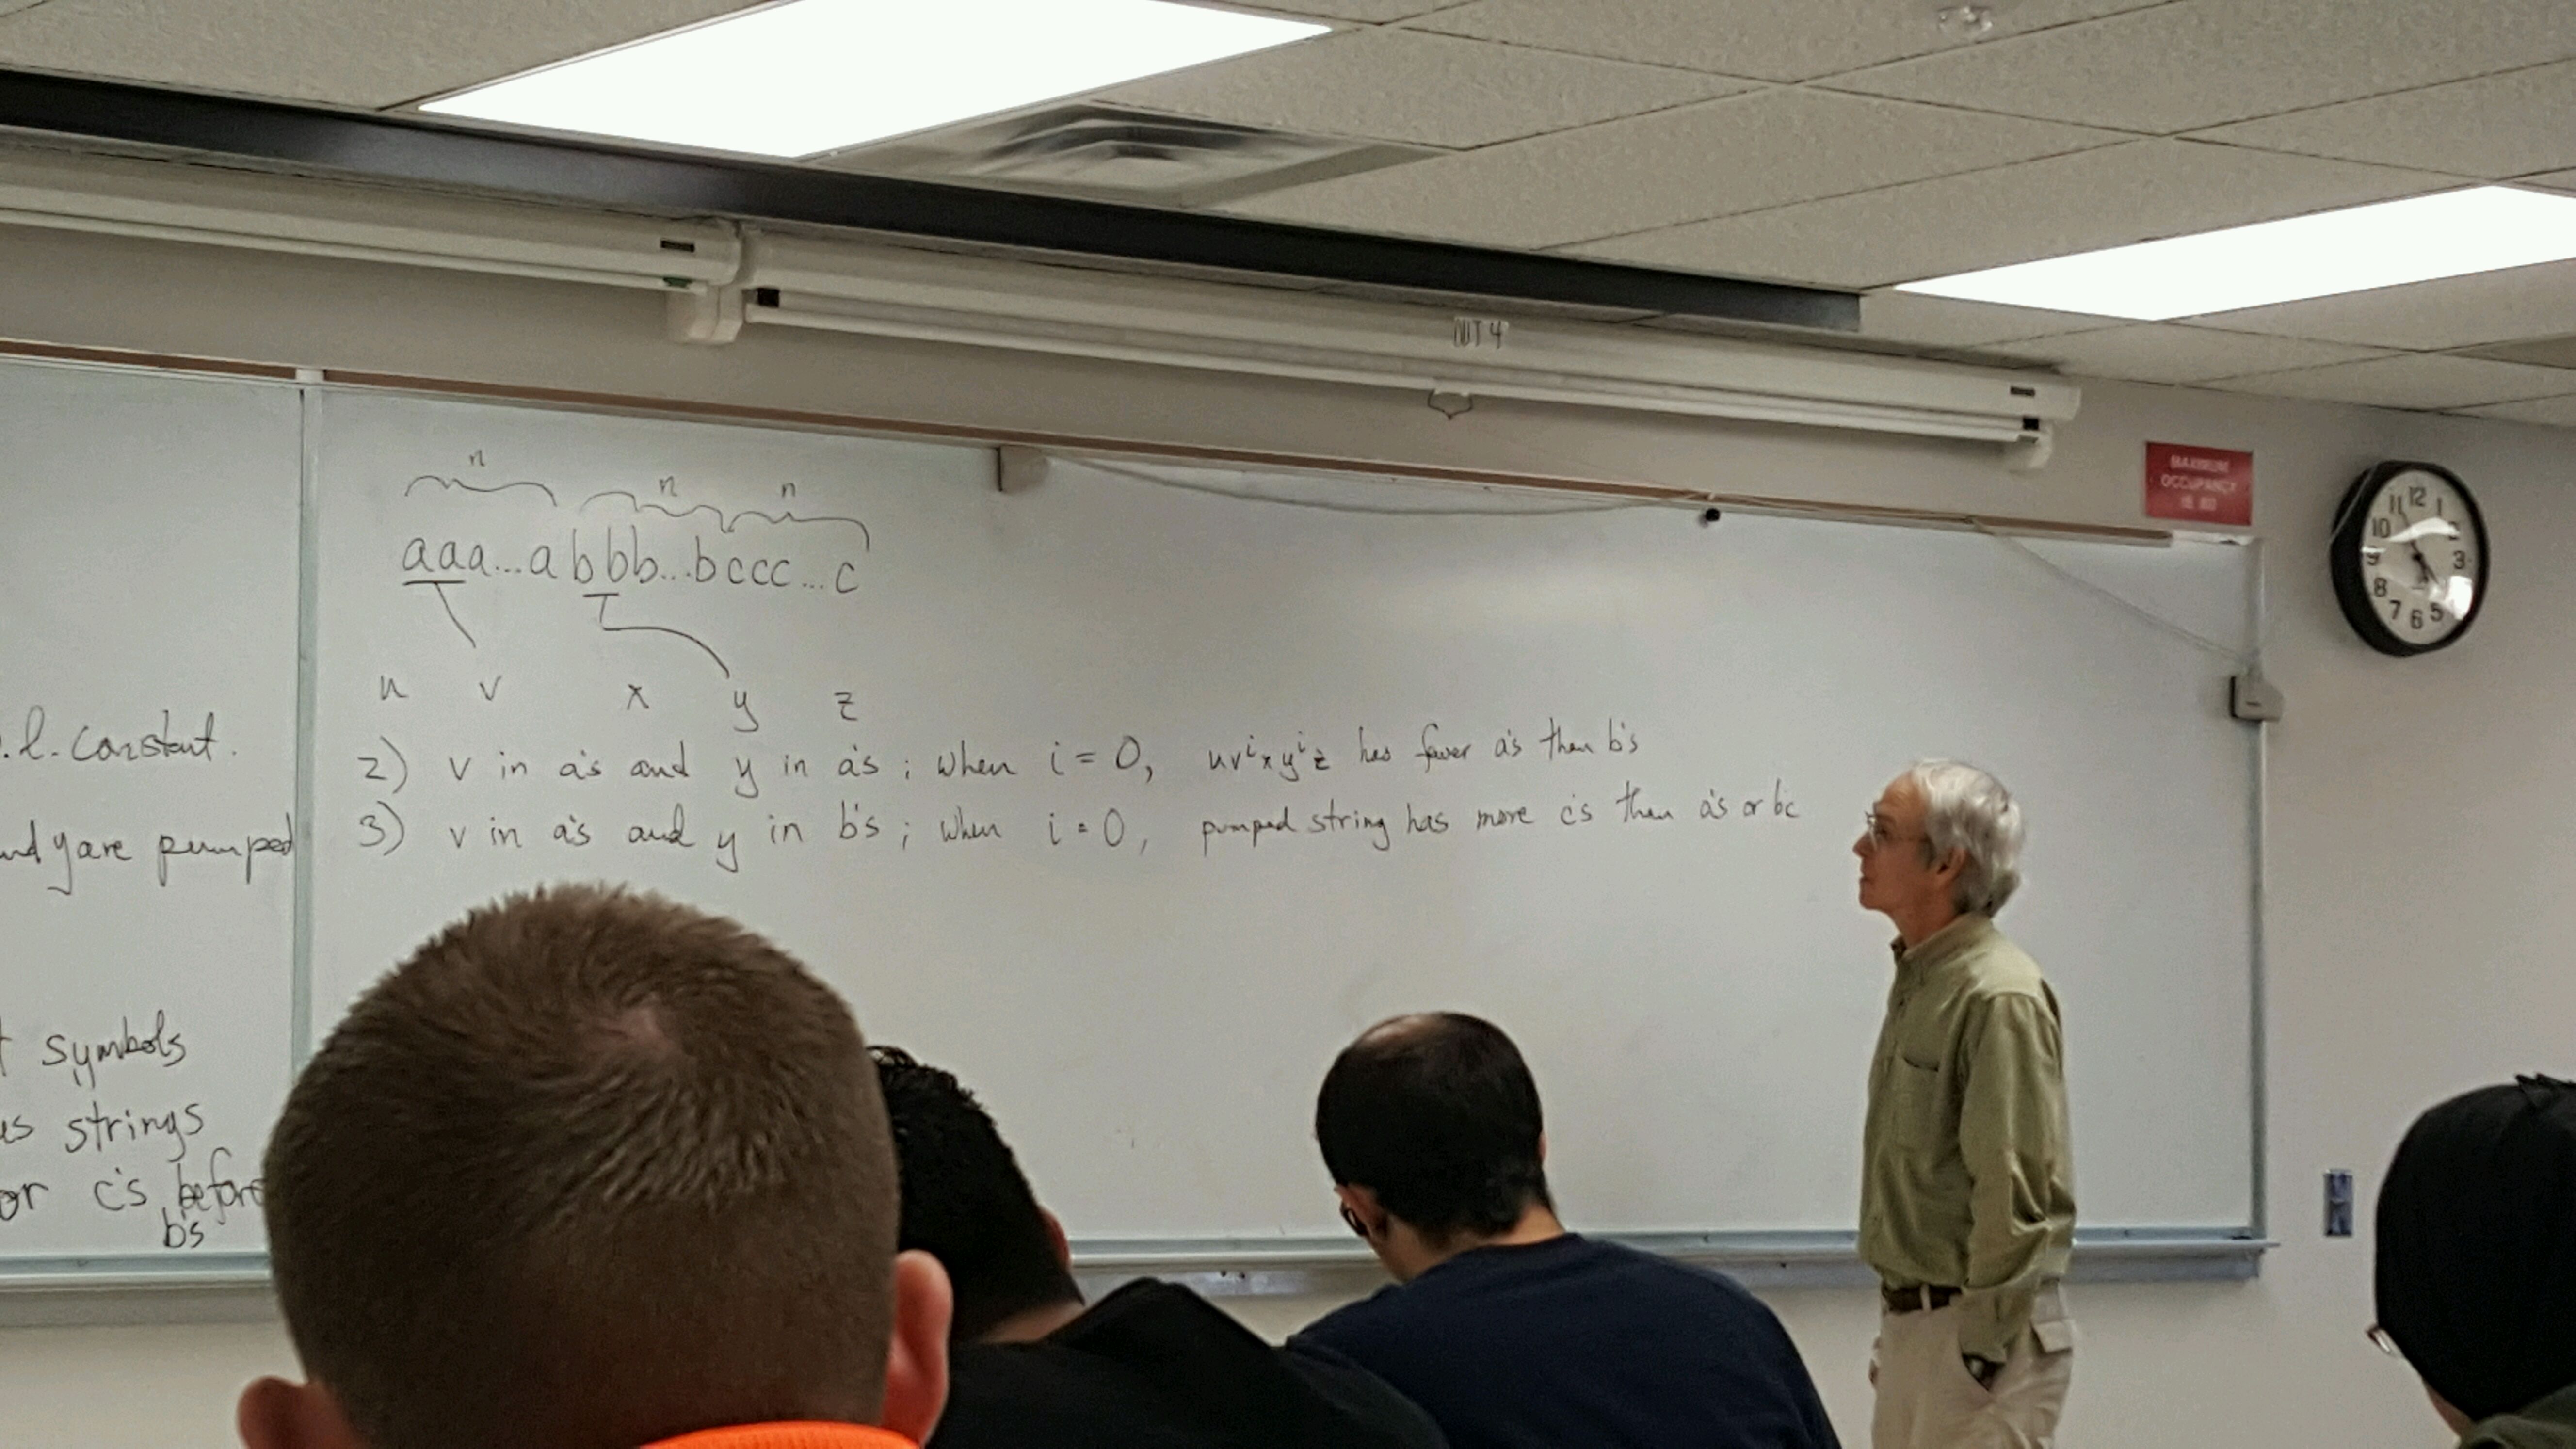 NIT 4
MAXIMUM
OCCUPANCY
IS 80
12 1 2 3 5 6 7 8 9 10 11
l. constant.
and y are pumped
symbols
us strings
or c's before
b's
n n n
aaa...abbb...bccc...c
u v x y z
2) v in a's and y in a's ; when i = 0, uvⁱxyⁱz has fewer a's than b's
3) v in a's and y in b's ; when i = 0, pumped string has more c's than a's or bc